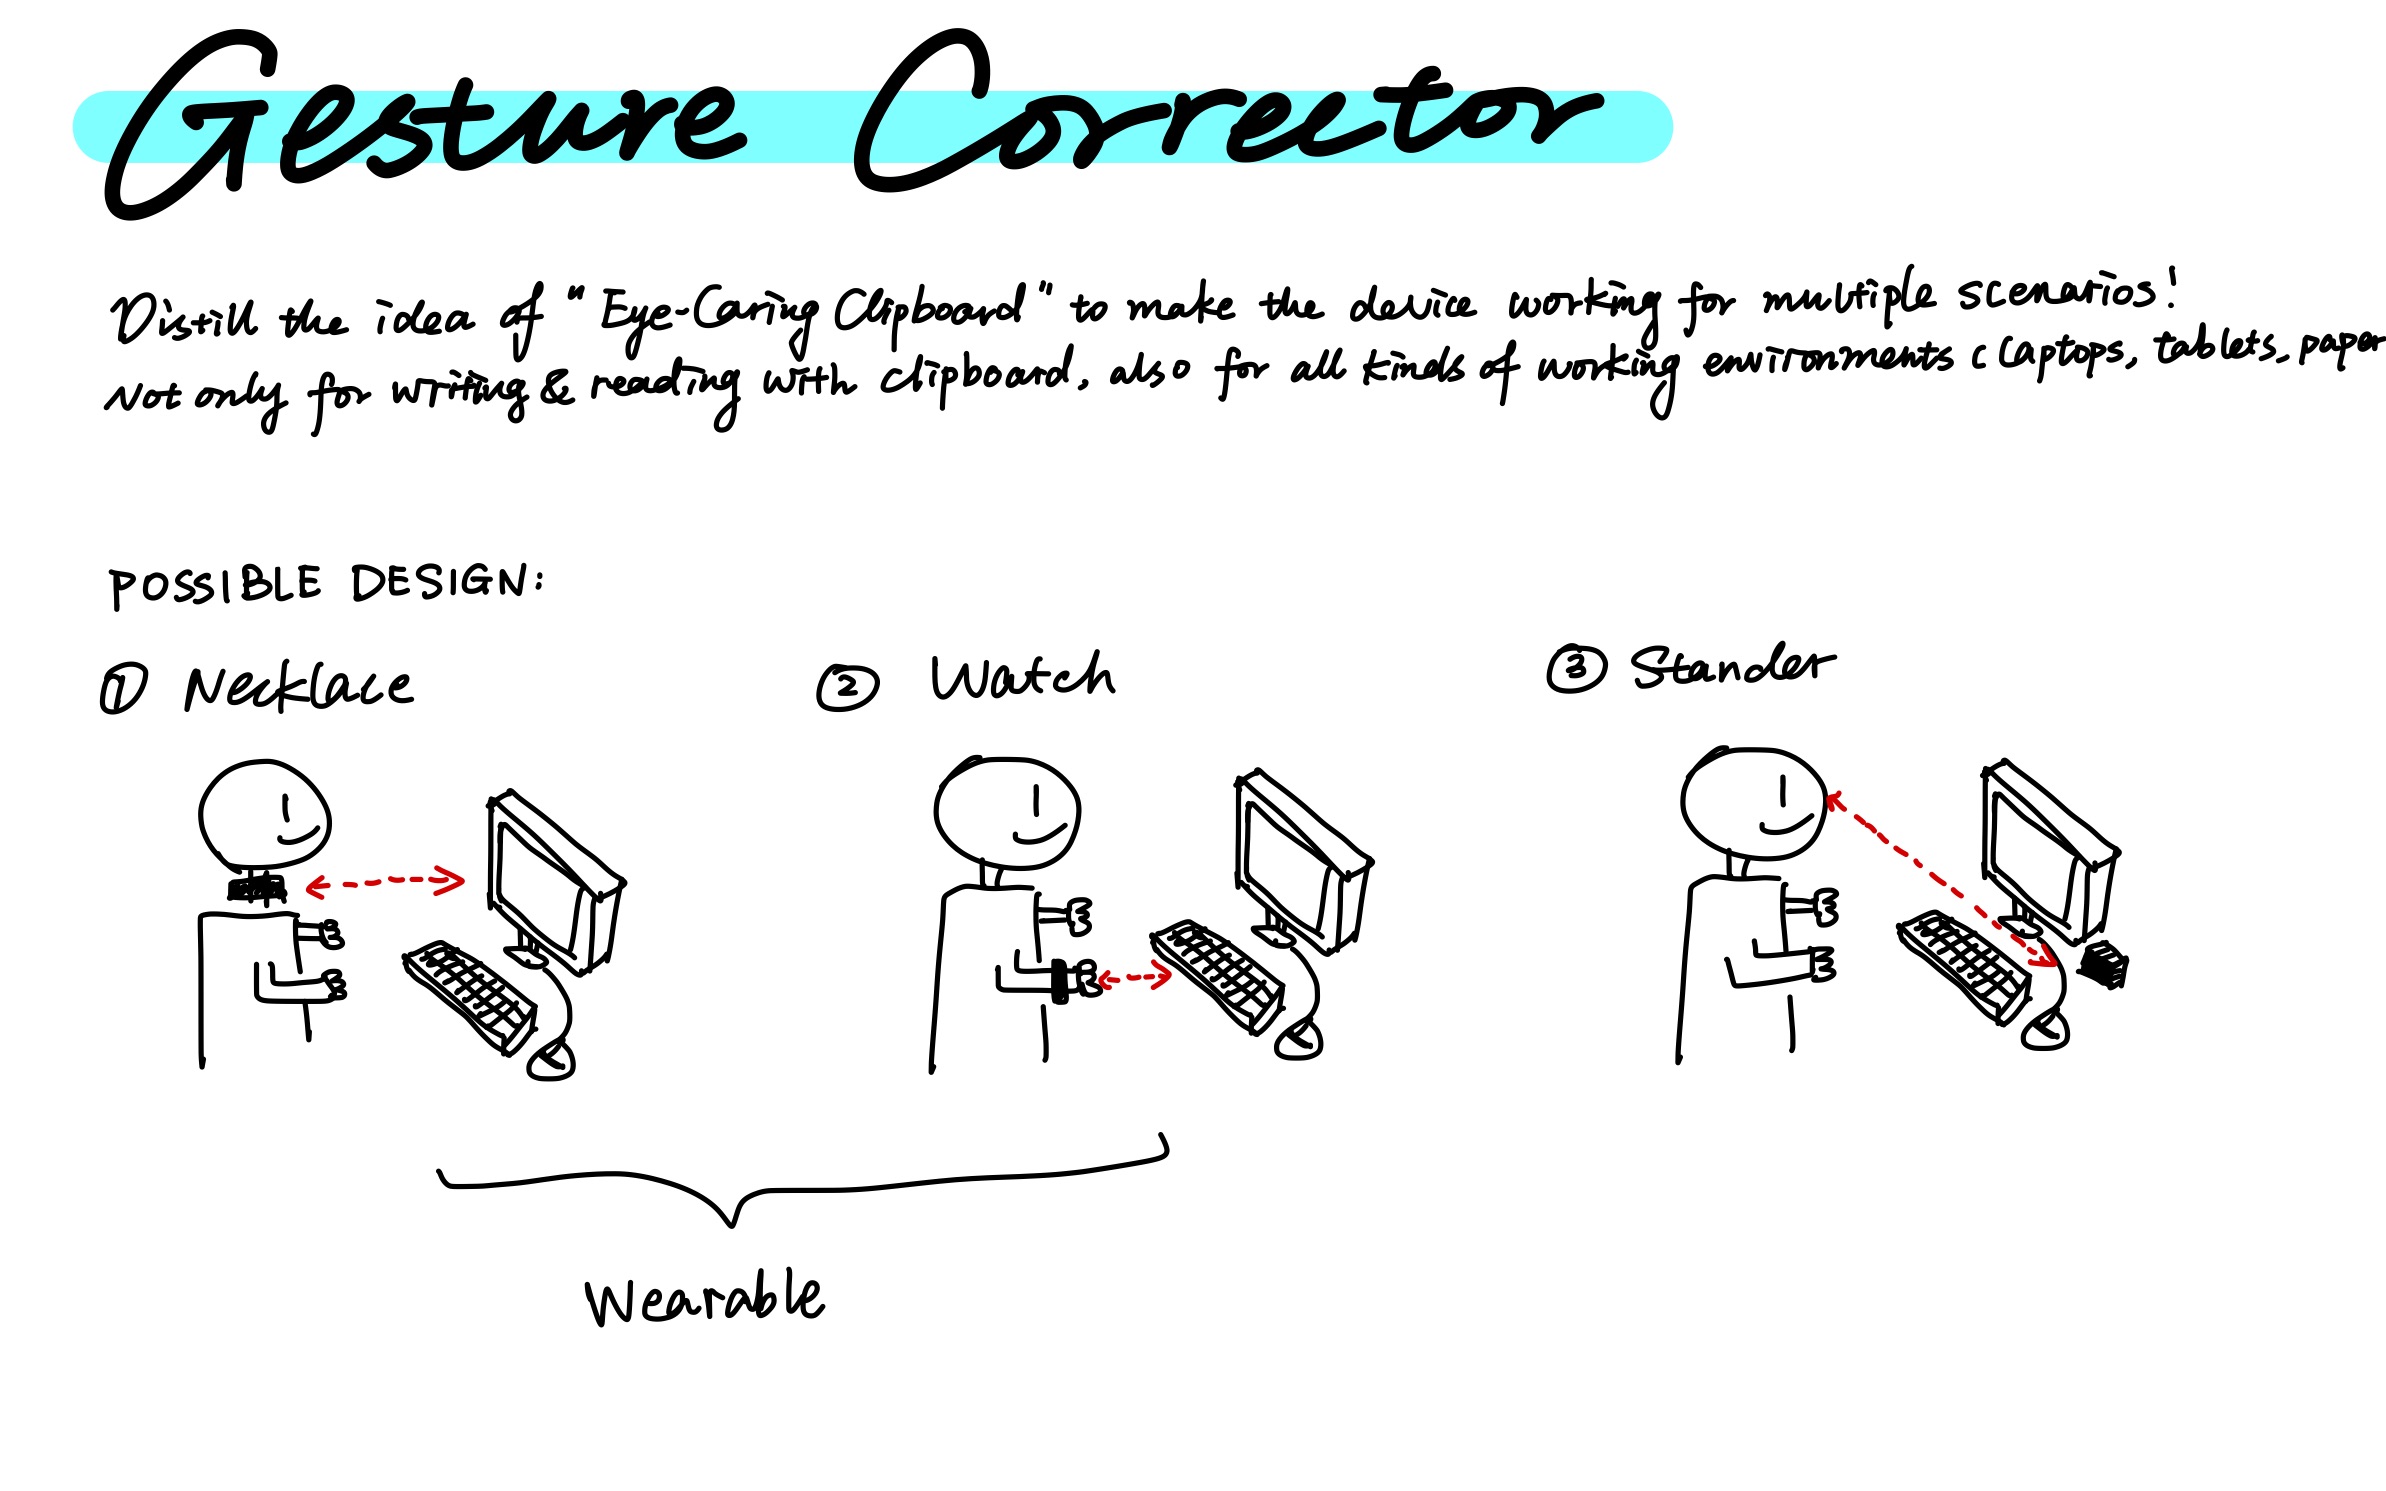 Gesture Corrector
Distill the idea of "Eye-Caring Clipboard" to make the device working for multiple scenarios!
Not only for writing & reading with clipboard, also for all kinds of working environments ( laptops, tablets, paper
POSSIBLE DESIGN:
① Necklace ② Watch ③ Stander
Wearable